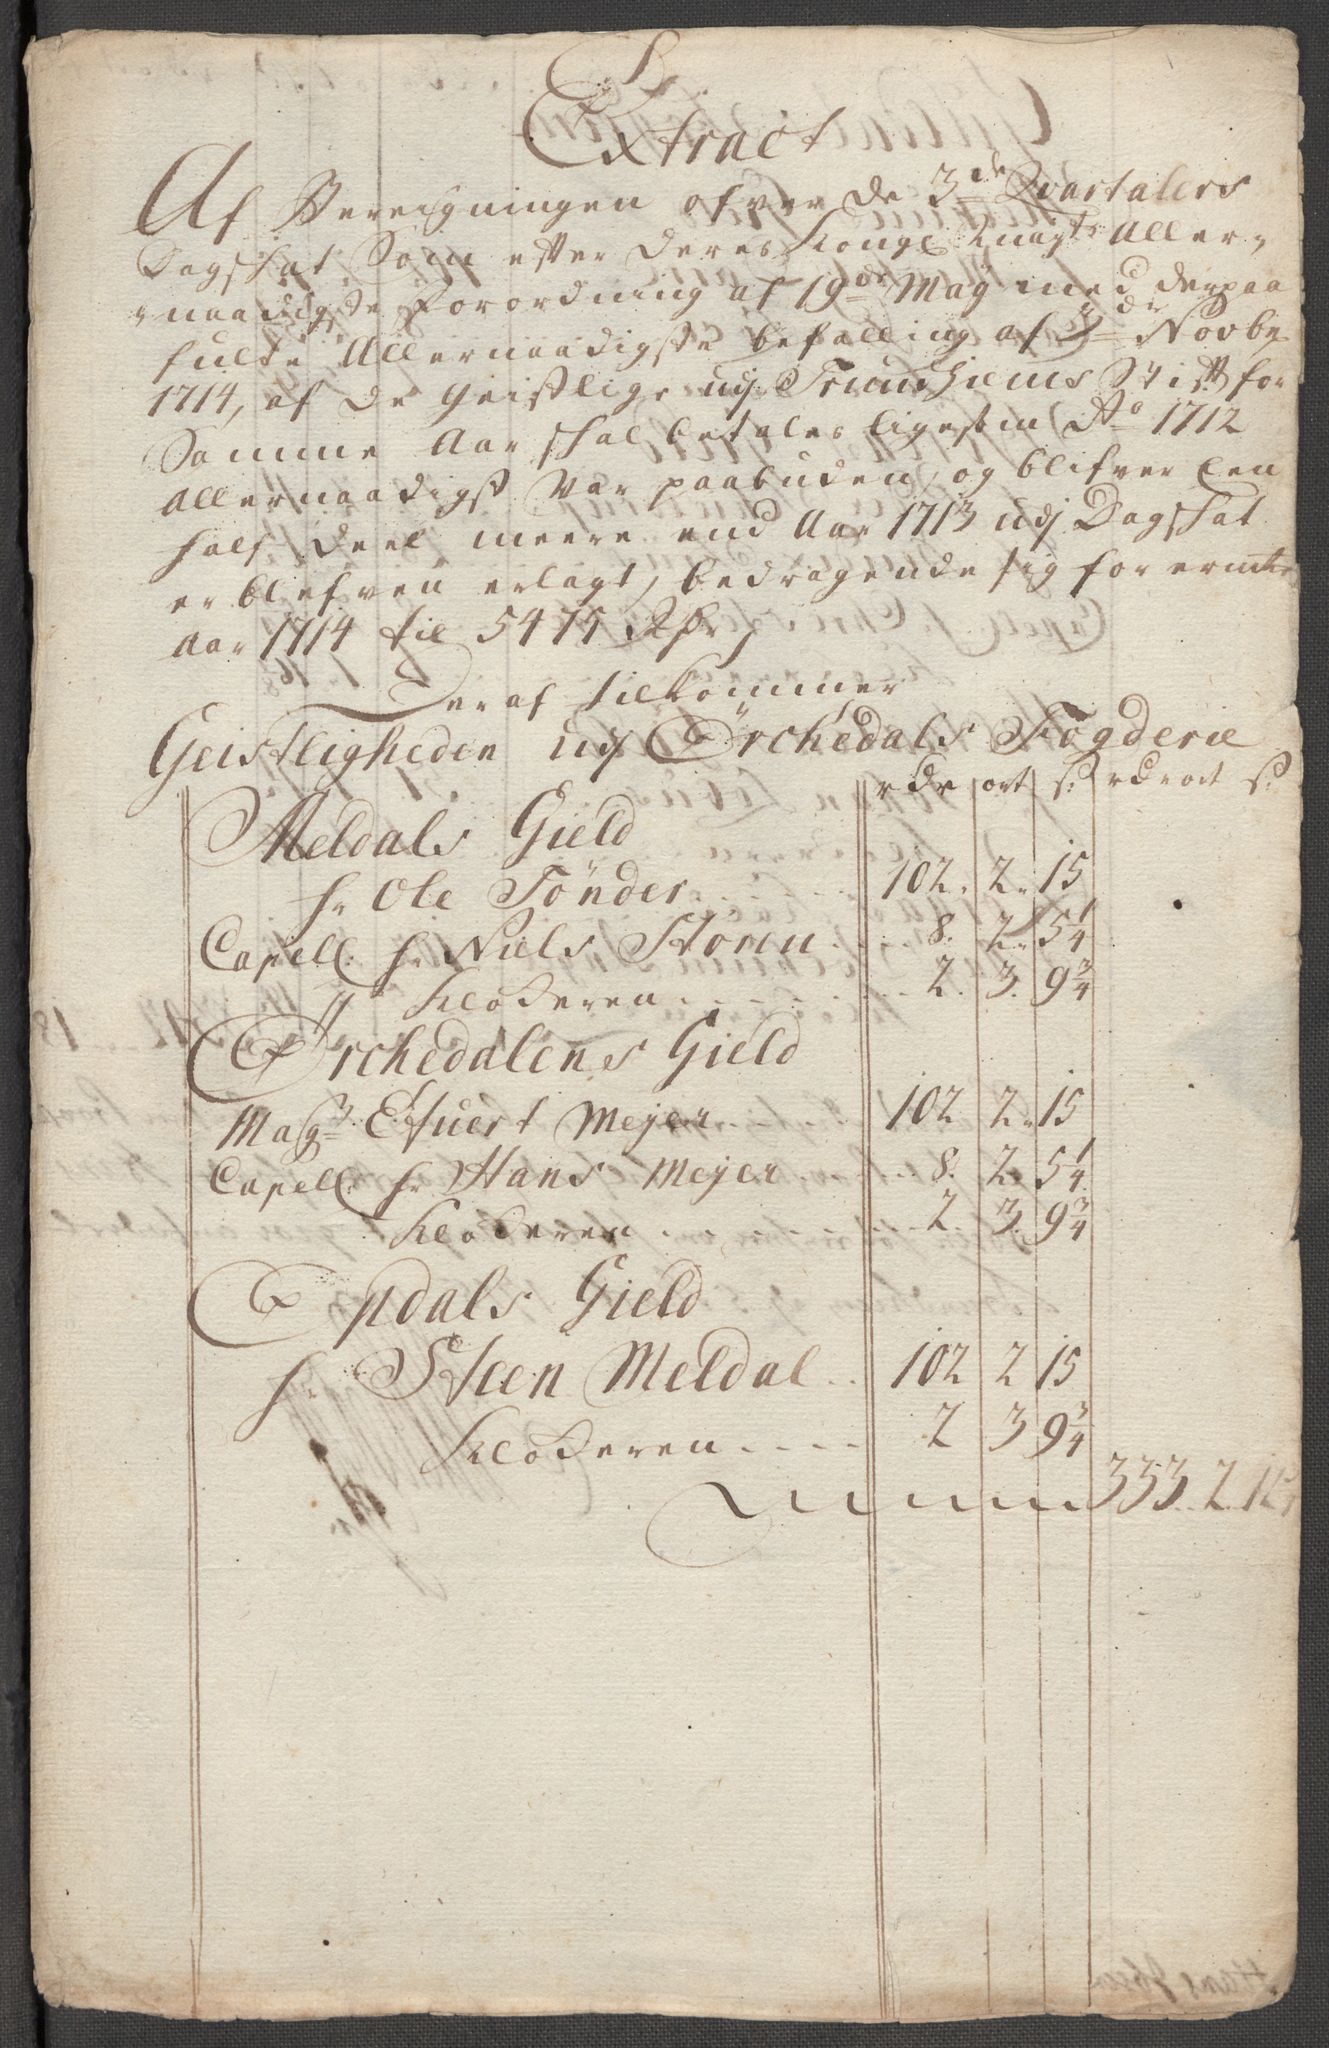 Extract
Af Bereigningen ofver de 3de Qvartalers
Dagskat Som efter deres Kongl: Mayts Aller=
=naadigste Forordning af 19de May med derpaa
fulte Allernaadigste befalling af de Novbr
1714, af de Geistlige udj Trundhiems Stift for
Samme Aar skal betales ligesom Ao 1712
Allernaadigst var paabuden, og blifver Een
half deel meere end Aar 1713 udj Dagskat
er blefven erlagt, bedragende sig for ermte
Aar 1714 til 5475 Rdr,
Deraf tilkommer
Geistligheden udj Örchedals Fogderie
rdr ort s: rdr ort s:
Meldals Gield
hr Ole Tönder 102. 2. 15
Capell: hr Niels Storm 8. 2. 5 1/4
" Klokeren 2. 3. 9 3/4
Örchedalens Gield
Magr Efuert Mejer 102 2. 15
Capell: hr Hans Mejer 8. 2. 5 1/4
Klokeren 2. 3. 9 3/4
Opdals Gield
hr Steen Meldal 102 2 15
Klokeren 2 3 9 3/4
333. 2. 12